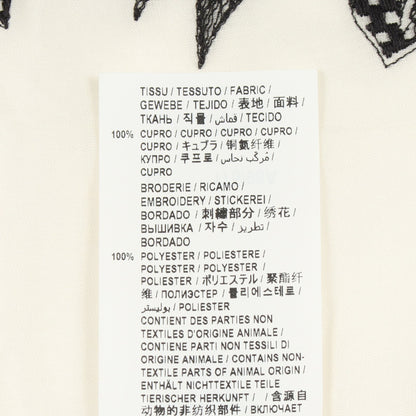 TISSU / TESSUTO / FABRIC /
GEWEBE / TEJIDO / 表地 / 面料 /
ТКАНЬ / 직물 / قماش / TECIDO
100% CUPRO / CUPRO / CUPRO / CUPRO /
CUPRO / キュプラ / 铜氨纤维 /
КУПРО / 쿠프로 / مركب نحاس /
CUPRO
BRODERIE / RICAMO /
EMBROIDERY / STICKEREI /
BORDADO / 刺繍部分 / 绣花 /
ВЫШИВКА / 자수 / تطريز /
BORDADO
100% POLYESTER / POLIESTERE /
POLYESTER / POLYESTER /
POLIESTER / ポリエステル / 聚酯纤
维 / ПОЛИЭСТЕР / 폴리에스테르 /
بوليستر / POLIESTER
CONTIENT DES PARTIES NON
TEXTILES D'ORIGINE ANIMALE /
CONTIENE PARTI NON TESSILI DI
ORIGINE ANIMALE / CONTAINS NON-
TEXTILE PARTS OF ANIMAL ORIGIN /
ENTHÄLT NICHTTEXTILE TEILE
TIERISCHER HERKUNFT / / 含源自
动物的非纺织部件 / ВКЛЮЧАЕТ